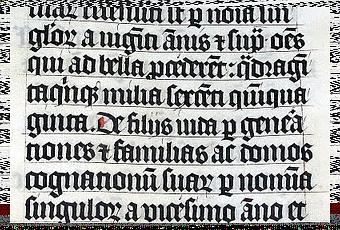 glor̄ a uiginti ānis ⁊ sup̄ oēs
qui ad bella ꝓcederēt: qͣdragī
taqͥnqꝫ milia sexcēti quīqua
ginta. De filijs iuda ꝑ geneͣa
tiones ⁊ familias ac domos
cognationū suaꝝ ꝑ nomīa
singuloꝝ a vicesimo āno et